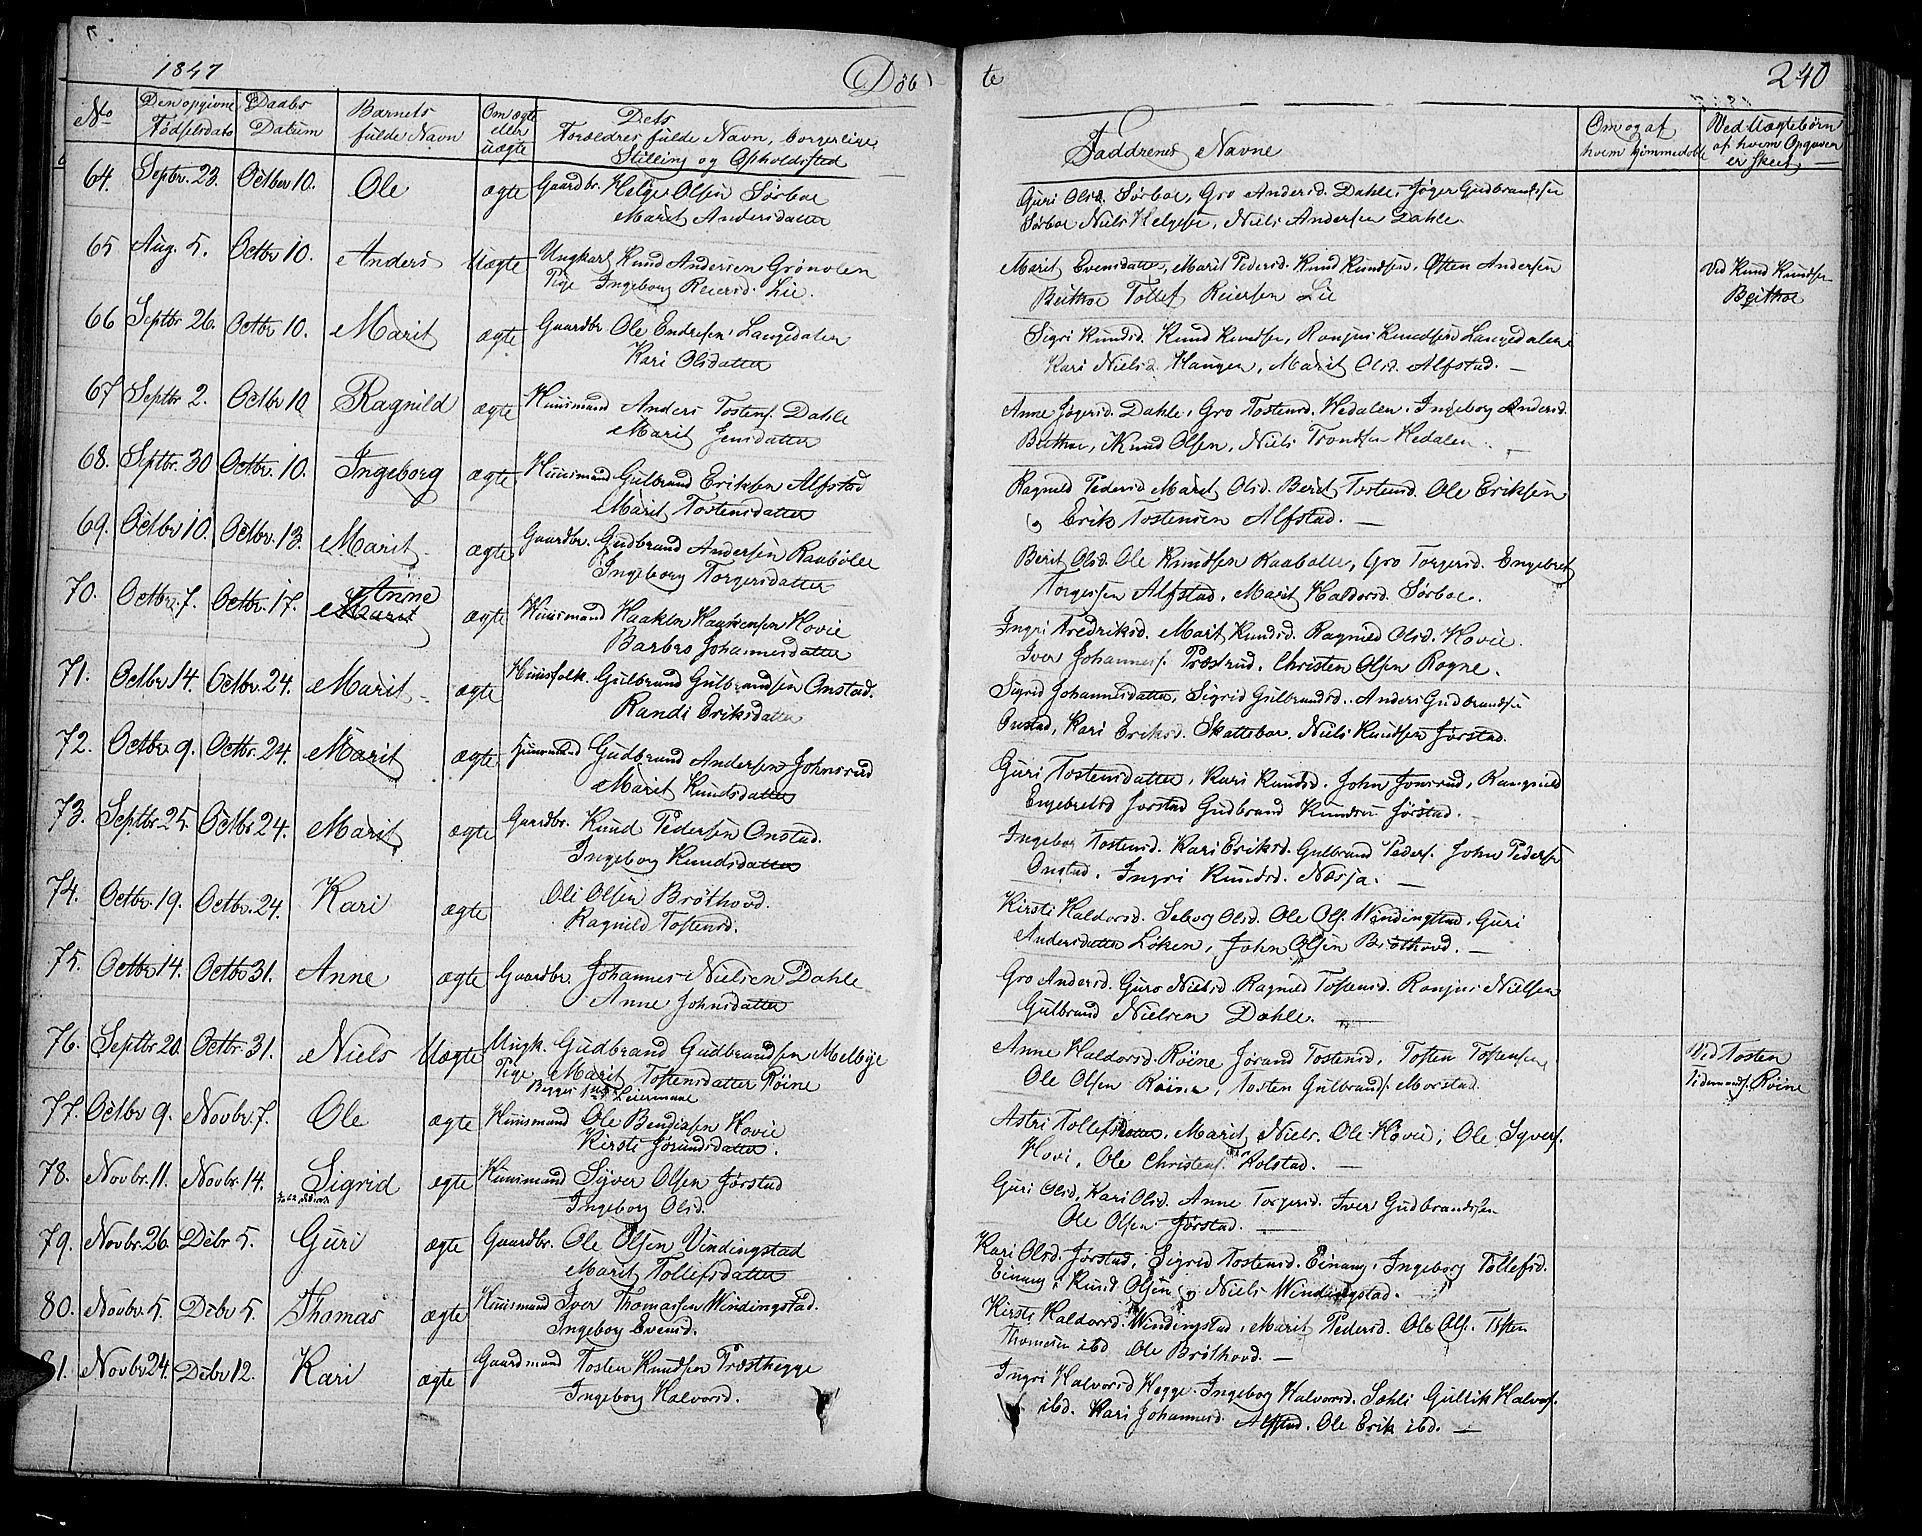 1847
Døb
te
240
No
Den opgivne Fødselsdato
Daabs Datum
Barnets fulde Navn
Om ægte eller uægte
Dets Forældres fulde Navn, borgerlige Stilling og Opholdssted
Faddrenes Navne
Om og af hvem hjemmedøbt
Ved Uægtebørn af hvem Opgaven er skeet
64. Septbr. 23. Octbr 10. Ole ægte Gaardbr. Helge Olsen Sørboe
Marit Andersdatter
Guri Olsd. Sørboe, Gro Andersd. Dahle, Jøger Gudbrandsen
Sørboe Niels Helgesen, Niels Andersen Dahle
65 Aug. 5. Octbr 10. Anders Uægte Ungkarl Knud Andersen Grønolen
Pige Ingeborg Reiersd. Lie.
Marit Evensdatter, Marit Pedersd. Knud Knudsen, Østen Andersen
Beithoe Tollef Reiersen Lie
Ved Knud Knudsen
Beithoe
66 Septbr 26. Octbr 10. Marit ægte Gaardbr Ole Endresen Langedalen
Kari Olsdatter
Sigri Knudsd. Knud Knudsen, Ronjus Knudsen Langedalen
Kari Nielsd. Haugen, Marit Olsd. Alfstad. —
67 Septbr 2. Octbr 10 Ragnild ægte Huusmand Anders Tostens. Dahle
Marit Jensdatter
Anne Jøgersd. Dahle, Gro Tostensd. Hedalen. Ingeborg Andersd.
Beithoe, Knud Olsen, Niels Trondsen Hedalen. —
68. Septbr. 30 Octbr. 10. Ingeborg ægte Huusmand Gulbrand Eriksen Alfstad
Marit Tostensdatter
Ragnild Pedersd Marit Olsd. Berit Tostensd. Ole Eriksen
og Erik Tostensen Alfstad. —
69. Octbr 10. Octbr. 13. Marit ægte Gaardbr. Gudbrand Andersen Raabøle
Ingeborg Torgersdatter
Berit Olsd. Ole Knudsen Raabøle, Gro Torgersd. Engebret
Torgersen Alfstad, Marit Haldorsd. Sørboe.
70. Octbr. 7. Octbr. 17. Anne Marit ægte Huusmand Haaken Haakensen Hovie
Barbro Johannesdatter
Ingri Fredriksd. Marit Knudsd. Ragnild Olsd. Hovie.
Iver Johannes. Præstrud. Christen Olsen Rogne.
71. Octbr 14. Octbr. 24. Marit ægte Huusfolk. Gulbrand Gulbrandsen Onstad.
Randi Eriksdatter
Sigrid Johannesdatter, Sigrid Gulbrandsd. Anders Gudbrandsen
Onstad, Kari Eriksd. Skatteboe, Niels Knudsen Jørstad.
72. Octbr 9. Octbr. 24. Marit ægte Huusmand Gudbrand Andersen Johnsrud
Marit Knudsdatter
Guri Tostensdatter, Kari Knudsd. John Jonsrud, Rangnild
Engebretsd Jorstad Gudbrand Knudsen Jørstad.
73. Septbr. 25. Octbr 24. Marit ægte Gaardbr. Knud Pedersen Onstad.
Ingeborg Knudsdatter
Ingeborg Tostensd. Kari Eriksd. Gulbrand Peders. John Pedersen
Onstad. Ingri Knudsd. Næsja. —
74. Octbr. 19. Octbr. 24. Kari ægte Ole Olsen Brøthovd.
Ragnild Tostensd.
Kirsti Haldorsd. Seborg Olsd. Ole Ols. Windingstad, Guri
Andersdatter Løken, John Olsen Brøthovd. —
75. Octbr 14. Octbr 31. Anne ægte Gaardbr. Johannes Nielsen Dahle
Anne Johnsdatter
Gro Andersd. Guro Nielsd. Ragnild Tostensd. Ronjus Nielsen
Gulbrand Nielsen Dahle.
76. Septbr 20. Octbr. 31. Niels Uægte Ungk. Gudbrand Gudbrandsen Melbye
Pige Marit Tostensdatter Røine
Begges 1ste Leiermaal
Anne Haldorsd. Røine, Jørand Tostensd, Tosten Tostensen,
Ole Olsen Røine, Tosten Gulbrands. Morstad.
Ved Tosten
Tidemands. Røine
77. Octbr 9. Novbr. 7. Ole ægte Huusmand Ole Bendixsen Hovie
Kirsti Jørundsdatter.
Astri Tollefsdatter, Marit Niels. Ole Hovie, Ole Syvers.
Hovi, Ole Christens. Rolstad. —
78. Novbr. 11. Novbr. 14. Sigrid egte Huusmand Syver Olsen Jørstad
Ingeborg Olsd.
Guri Olsd, Kari Olsd. Anne Torgersd. Iver Gudbrandsen
Ole Olsen Jørstad. —
79. Novbr. 26. Debr 5. Guri ægte Gaardbr. Ole Olsen Vindingstad
Marit Tollefsdatter
Kari Olsd. Jørstad, Sigrid Tostensd. Einang, Ingeborg Tollefsd.
Einang, Knud Olsen og Niels Windingstad. —
80. Novbr. 5. Debr 5. Thomas ægte Huusmand Iver Thomassen Windingstad.
Ingeborg Evensd.
Kirsti Haldorsd. Windingstad, Marit Pedersd. Ole Ols. Tosten
Thomesen ibd. Ole Brøthovd. —
81. Novbr 24. Debr 12. Kari ægte Gaardmand Tosten Knudsen Præsthegge
Ingeborg Halvorsd.
Ingri Halvorsd Hegge. Ingeborg Halvorsd. Sæhli Gullik Halvors.
ibd. Kari Johannesd. Alfstad. Ole Erik ibd. —